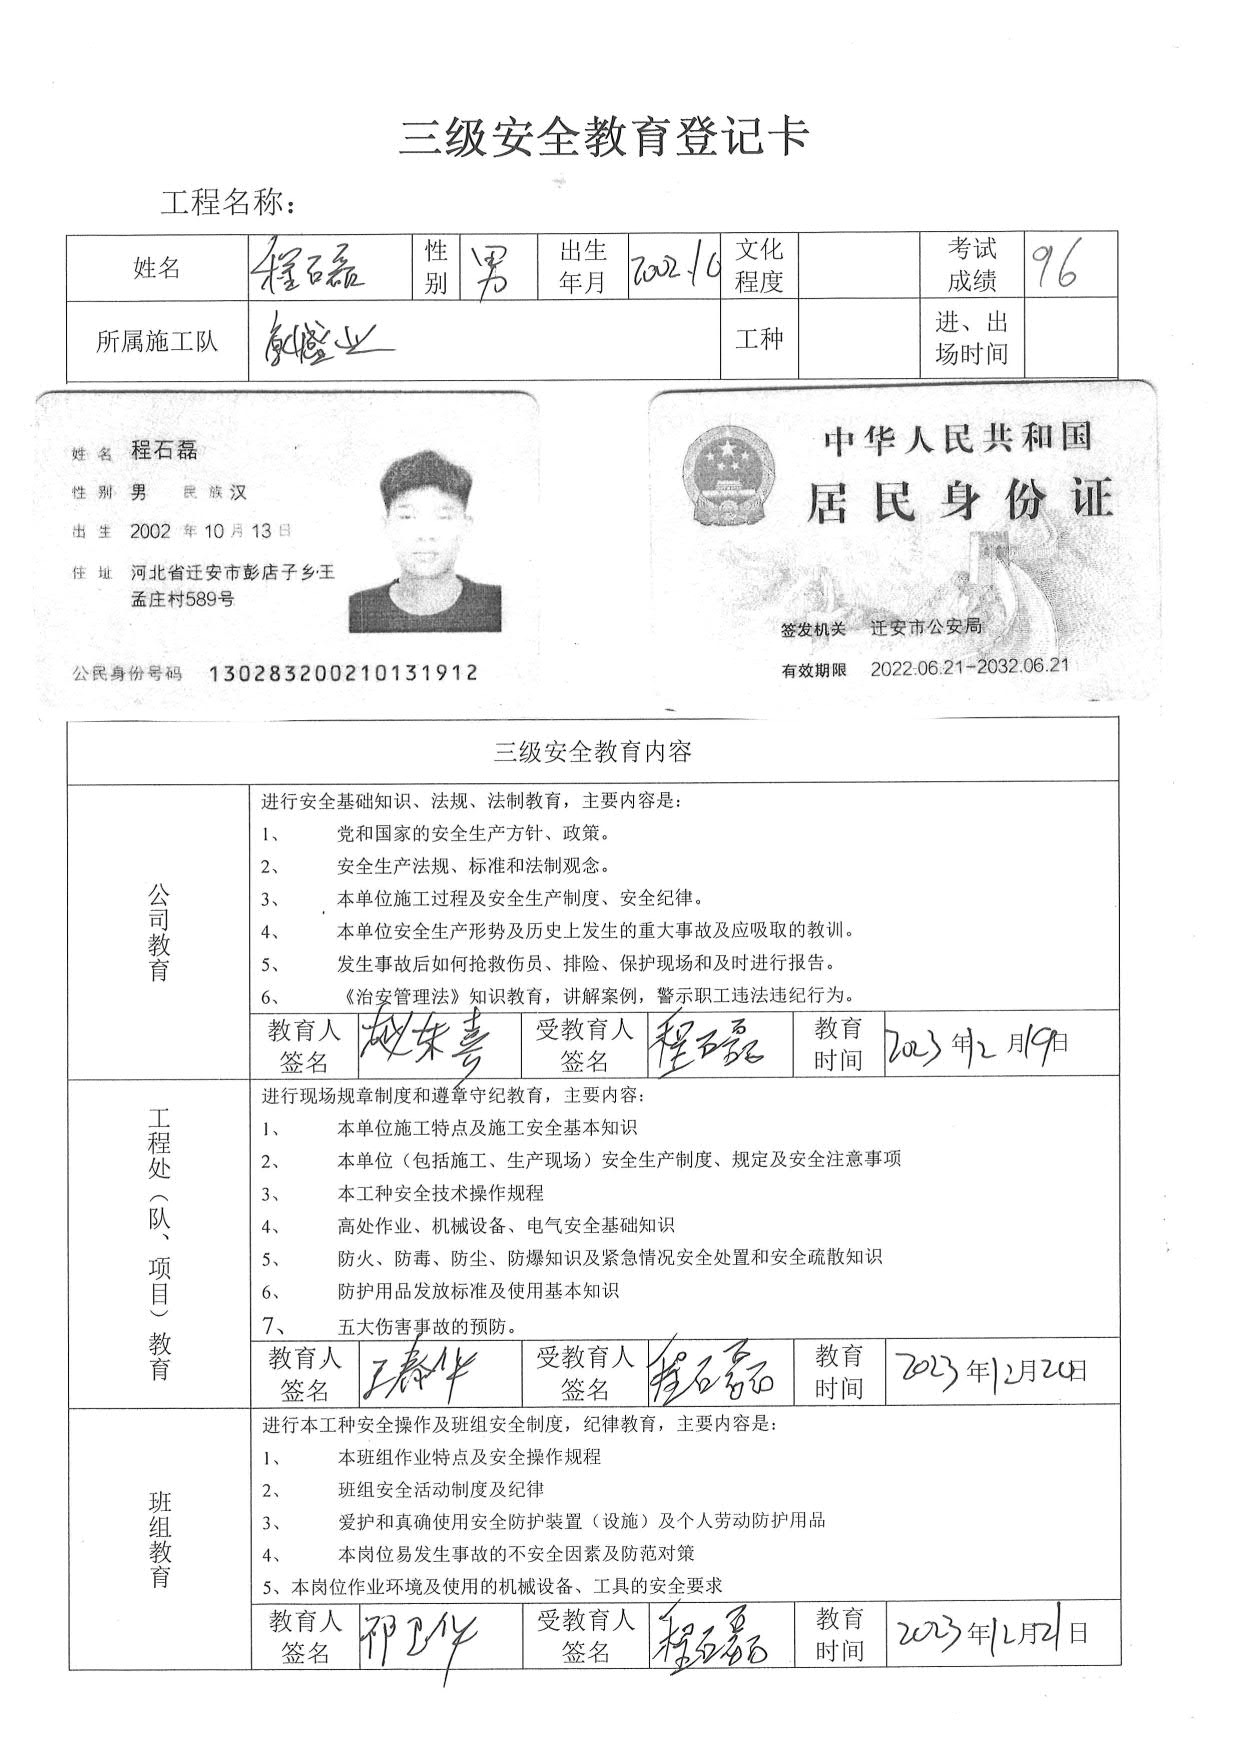 三级安全教育登记卡
工程名称：
姓名 程石磊 性别 男 出生年月 2002.10 文化程度 考试成绩 96
所属施工队 盛业 工种 进、出场时间
姓名 程石磊
性别 男 民族 汉
出生 2002 年 10 月 13 日
住址 河北省迁安市彭店子乡王
孟庄村589号
公民身份号码 130283200210131912
中华人民共和国
居民身份证
签发机关 迁安市公安局
有效期限 2022.06.21-2032.06.21
三级安全教育内容
公司教育
进行安全基础知识、法规、法制教育，主要内容是：
1、 党和国家的安全生产方针、政策。
2、 安全生产法规、标准和法制观念。
3、 本单位施工过程及安全生产制度、安全纪律。
4、 本单位安全生产形势及历史上发生的重大事故及应吸取的教训。
5、 发生事故后如何抢救伤员、排险、保护现场和及时进行报告。
6、 《治安管理法》知识教育，讲解案例，警示职工违法违纪行为。
教育人签名 赵东喜 受教育人签名 程石磊 教育时间 2023年12月19日
工程处（队、项目）教育
进行现场规章制度和遵章守纪教育，主要内容：
1、 本单位施工特点及施工安全基本知识
2、 本单位（包括施工、生产现场）安全生产制度、规定及安全注意事项
3、 本工种安全技术操作规程
4、 高处作业、机械设备、电气安全基础知识
5、 防火、防毒、防尘、防爆知识及紧急情况安全处置和安全疏散知识
6、 防护用品发放标准及使用基本知识
7、 五大伤害事故的预防。
教育人签名 王春华 受教育人签名 程石磊 教育时间 2023年12月20日
班组教育
进行本工种安全操作及班组安全制度，纪律教育，主要内容是：
1、 本班组作业特点及安全操作规程
2、 班组安全活动制度及纪律
3、 爱护和真确使用安全防护装置（设施）及个人劳动防护用品
4、 本岗位易发生事故的不安全因素及防范对策
5、本岗位作业环境及使用的机械设备、工具的安全要求
教育人签名 祁卫华 受教育人签名 程石磊 教育时间 2023年12月21日